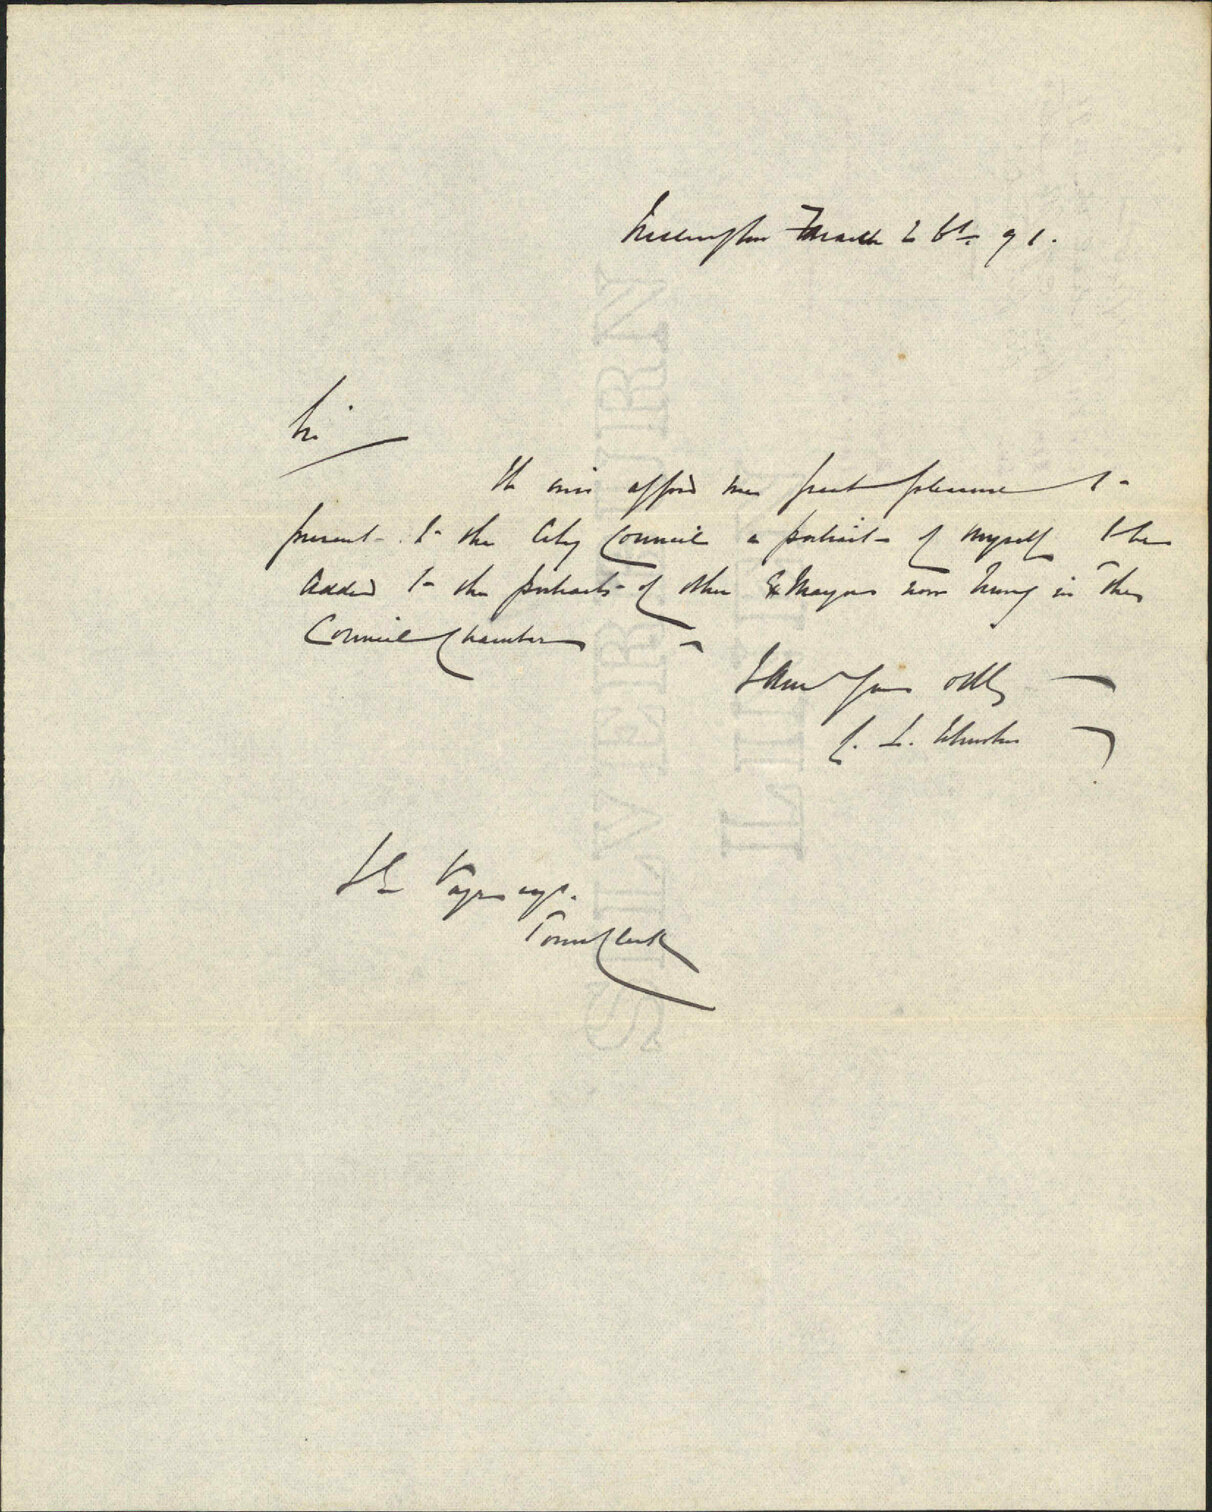 Wellington March 26th 91.
Sir
It will afford me great pleasure to
present to the City Council a portrait of myself to be
added to the portraits of other Ex Mayors now hung in the
Council Chamber
I have yours obtly
Town Clerk
SILVERBURN
LINEN